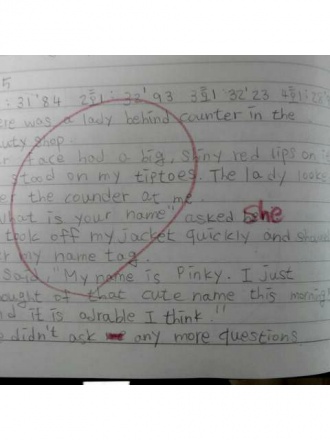 5
: 31'84 2호1: 32'93 3호1: 32'23 4호1:
ere was a lady behind counter in the
uty shop.
r face had a big, shiny red lips on i
stood on my tiptoes. The lady looke
er the counder at me.
what is your name" asked She
took off my jacket quickly and show
er my name tag.
Said, "My name is Pinky. I just
ought of that cute name this morning
d it is adrable I think."
e didn't ask any more questions.